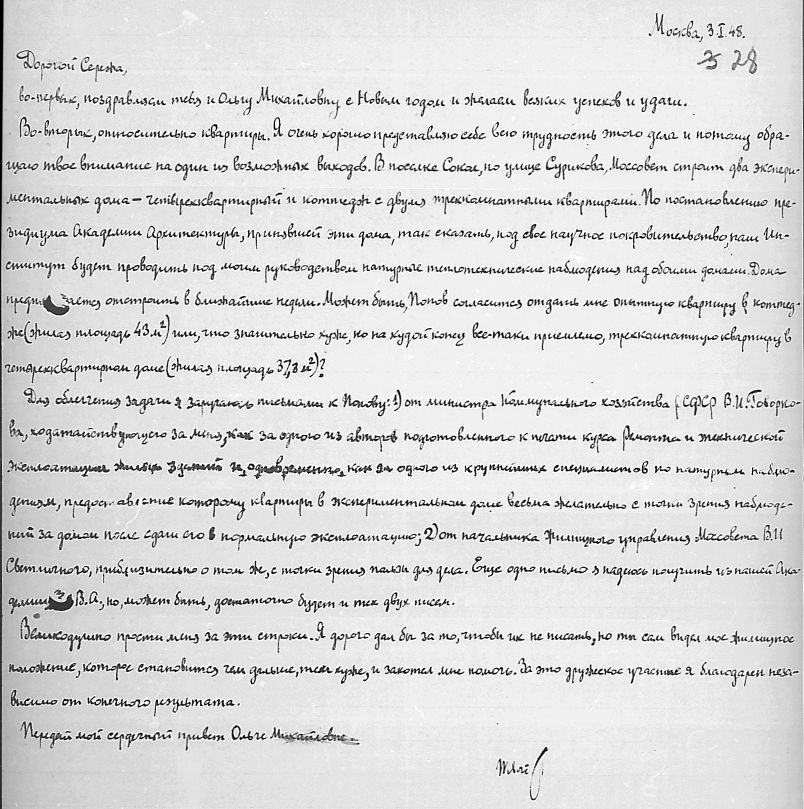 Москва, 3.I.48.
28
Дорогой Сережа,
во-первых, поздравляем тебя и Ольгу Михайловну с Новым годом и желаем всяких успехов и удачи.
Во-вторых, относительно квартиры. Я очень хорошо представляю себе всю трудность этого дела и потому обра-
щаю твое внимание на один из возможных выходов. В поселке Сокол, по улице Сурикова, Моссовет строит два экспери-
ментальных дома – четырехквартирный и коттедж с двумя трехкомнатными квартирами. По постановлению пре-
зидиума Академии Архитектуры, принявшей эти дома, так сказать, под свое научное покровительство, наш Ин-
ститут будет проводить под моим руководством натурные теплотехнические наблюдения над обоими домами. Дома
ается отстроить в ближайшие недели. Может быть, Попов согласится отдать мне опытную квартиру в коттед-
же (жилая площадь 43 м²) или, что значительно хуже, но на худой конец все-таки приемлемо, трехкомнатную квартиру в
четырехквартирном доме (жилая площадь 37,8 м²)?
Для облегчения задачи я запасаюсь письмами к Попову: 1) от министра Коммунального хозяйства РСФСР В.И. Говорко-
ва, ходатайствующего за меня, как за одного из авторов подготовленного к печати курса Ремонта и технической
эксплоатации жилых зданий и, одновременно, как за одного из крупнейших специалистов по натурным наблю-
дениям, предоставление которому квартиры в экспериментальном доме весьма желательно с точки зрения наблюде-
ний за домом после сдачи его в нормальную эксплоатацию; 2) от начальника Жилищного управления Моссовета В.И
Светличного, приблизительно о том же, с точки зрения пользы для дела. Еще одно письмо я надеюсь получить из нашей Ака-
демии В.А., но, может быть, достаточно будет и тех двух писем.
Великодушно прости меня за эти строки. Я дорого дал бы за то, чтобы их не писать, но ты сам видел мое жилищное
положение, которое становится чем дальше, тем хуже, и захотел мне помочь. За это дружеское участие я благодарен неза-
висимо от конечного результата.
Передай мой сердечный привет Ольге Михайловне.
Твой